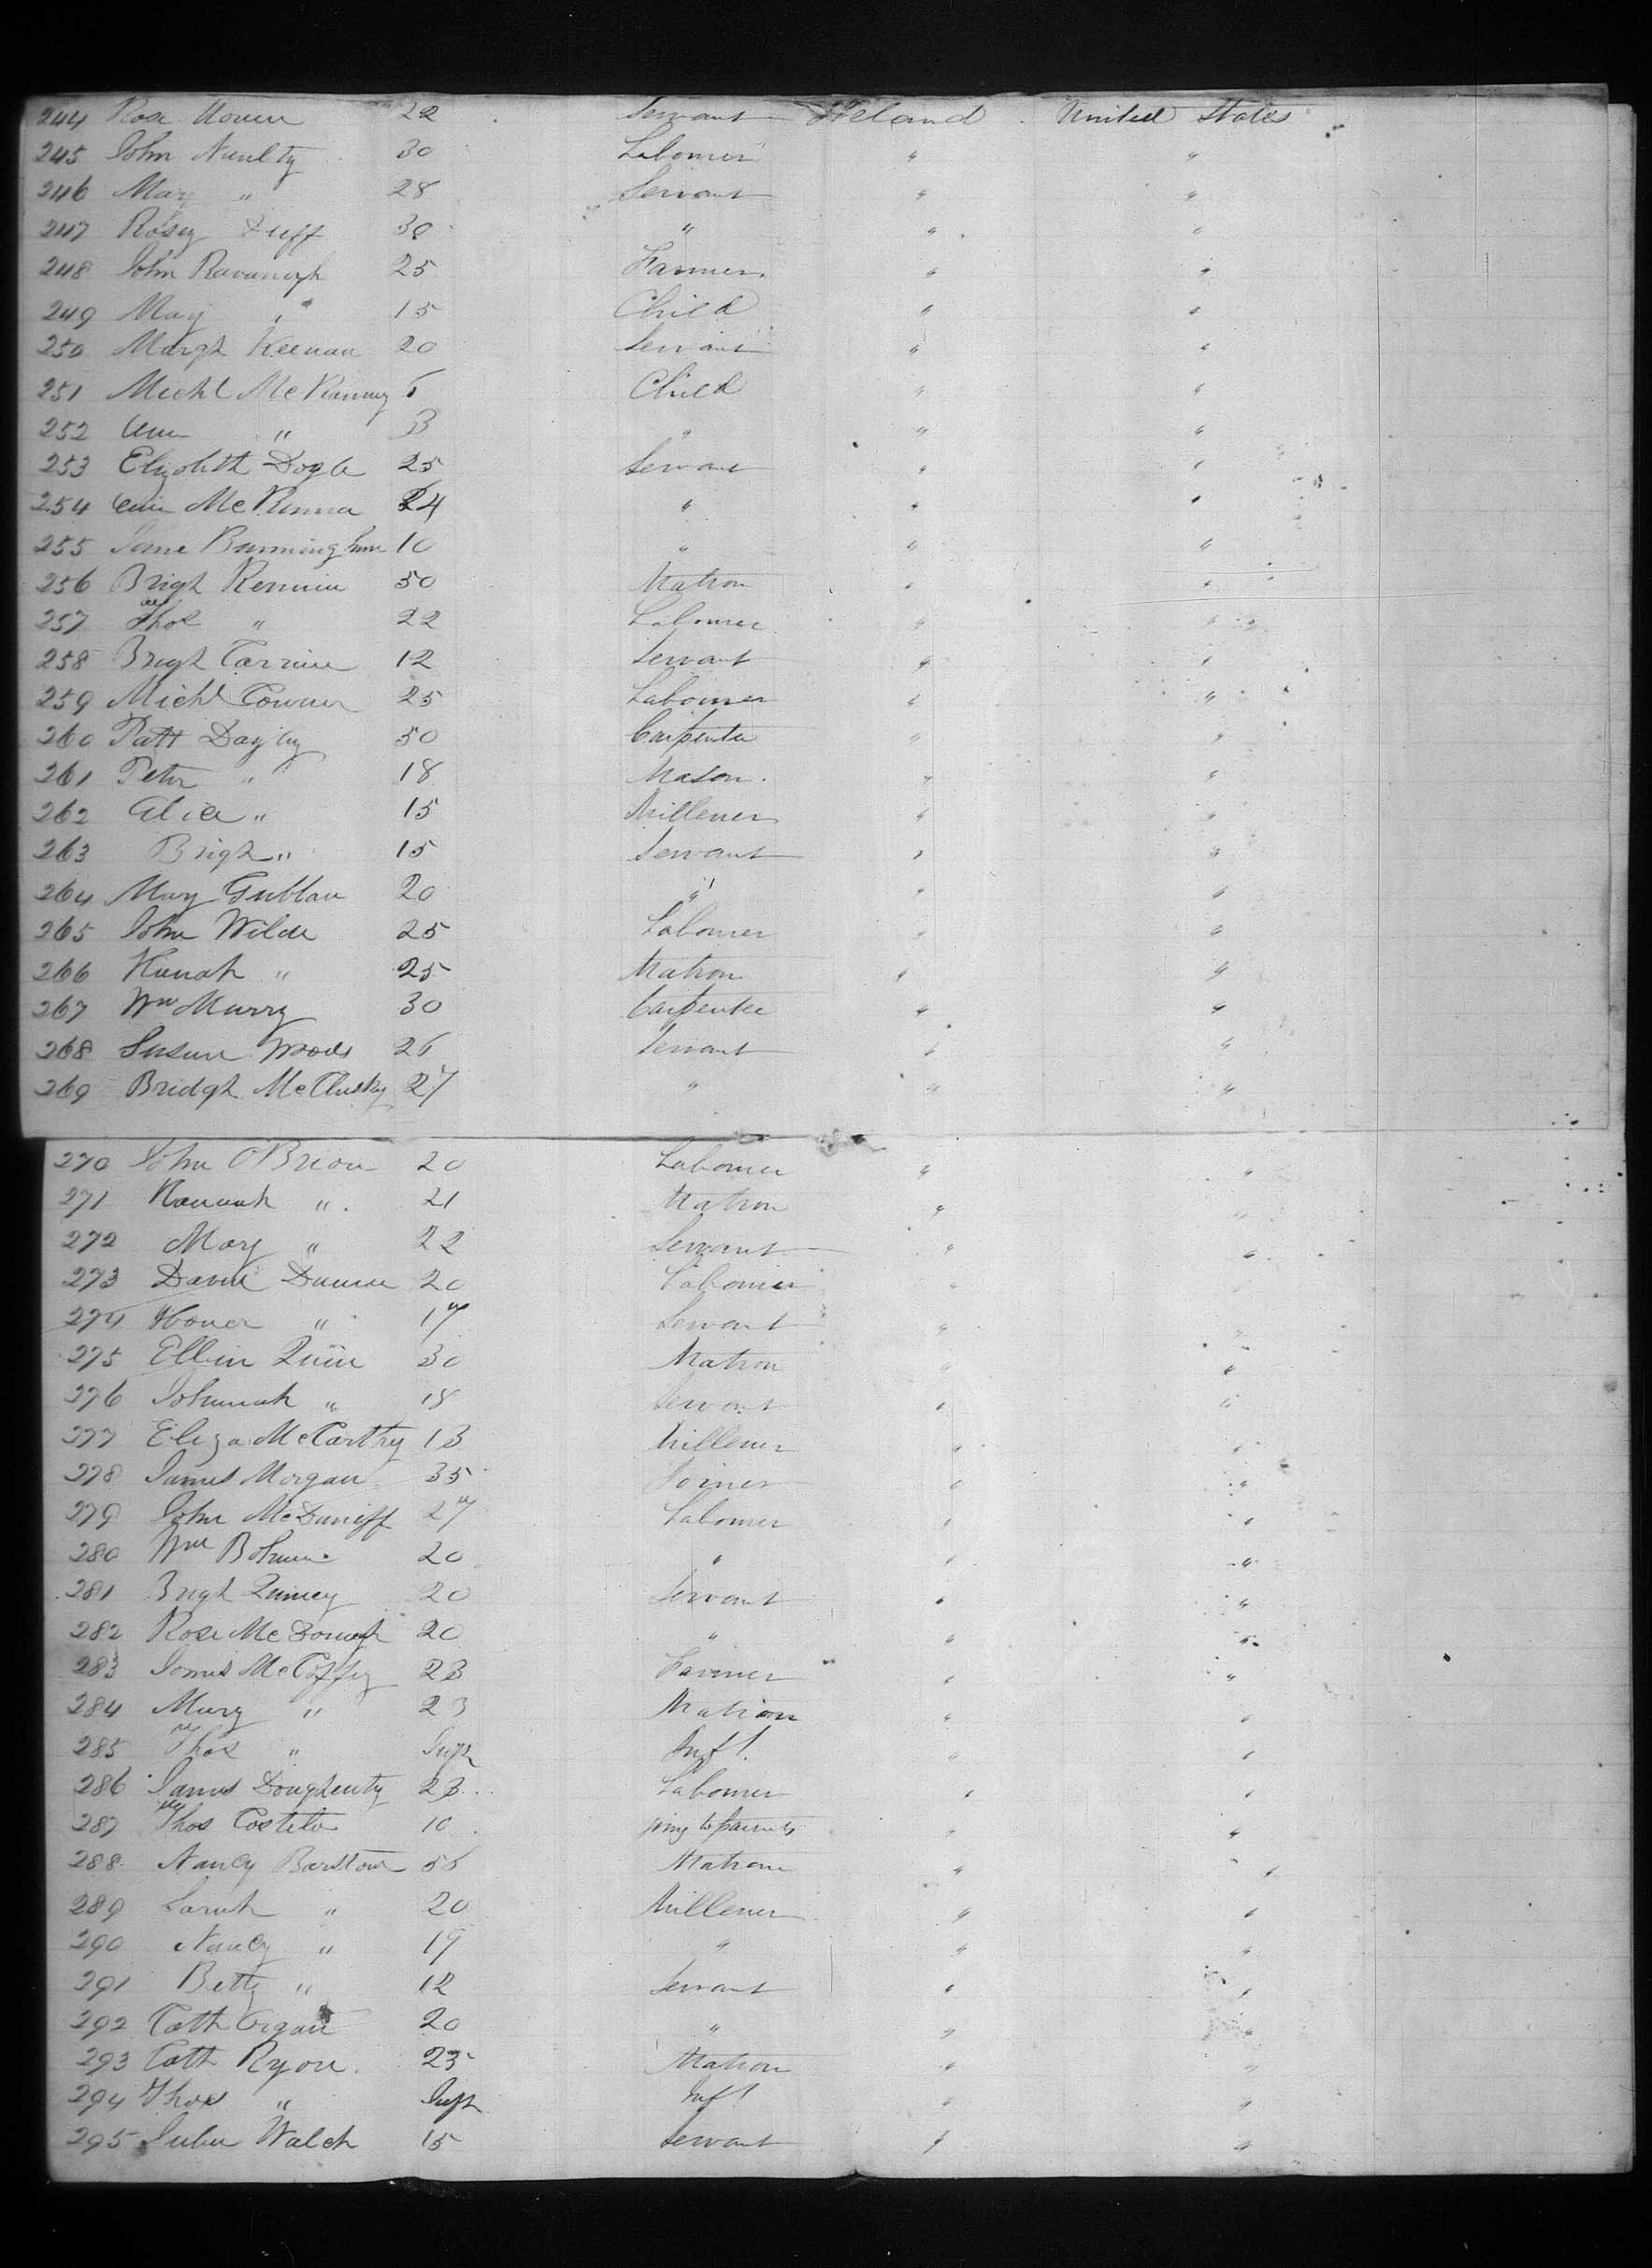 244 Rose 22 Servant Ireland United States
245 John Naulty 30 Labourer " "
246 Mary " 28 Servant " "
247 Rosey Duff 30 " " "
248 John Kavanagh 25 Farmer " "
249 May " 15 Child " "
250 Margt Keenan 20 Servant " "
251 Michl McKenny 5 Child " "
252 Ann " 3 " " "
253 Elizabeth Doyle 25 Servant " "
254 Ann McKenna 24 " " "
255 Jane Bunningham 10 " " "
256 Brigt 50 Matron " "
257 Thos " 22 Labourer " "
258 Brigt 12 Servant " "
259 Michl 25 Labourer " "
260 Patt 50 Carpenter " "
261 Peter " 18 Mason " "
262 Alice " 15 Millener " "
263 Brigt " 15 Servant " "
264 Mary 20 " " "
265 John Wilde 25 Labourer " "
266 Hanah " 25 Matron " "
267 Wm Murry 30 Carpenter " "
268 Susan Woods 26 Servant " "
269 Bridgt McClusky 27 " " "
270 John O'Brien 20 Labourer " "
271 Hannah " 21 Matron " "
272 Mary " 22 Servant " "
273 20 Labourer " "
274 Honer " 17 Servant " "
275 Ellin Quin 30 Matron " "
276 Johannah " 18 Servant " "
277 Eliza McCarthy 13 Millener " "
278 James Morgan 35 Joiner " "
279 John McDuniff 27 Labourer " "
280 Wm 20 " " "
281 Brigt 20 Servant " "
282 Rose McDonagh 20 " " "
283 James McCaffry 23 Farmer " "
284 Mary " 23 Matron " "
285 Thos " Inft Inft " "
286 James Dougherty 23 Labourer " "
287 Thos Costelo 10 going to parents " "
288 Nancy Barstow 56 Matron " "
289 Sarah " 20 Millener " "
290 Nancy " 19 " " "
291 Betty " 12 Servant " "
292 Cath 20 " " "
293 Cath Ryan 25 Matron " "
294 Thos " Inft Inft " "
295 Walch 15 Servant " "